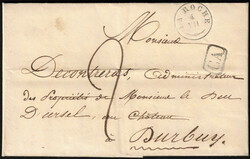 LA ROCHE
4
CA
Monsieur
2
Decontreras, Administrateur
des Propriétés de Monsieur le Duc
D'ursel, au Château
Burbuy.